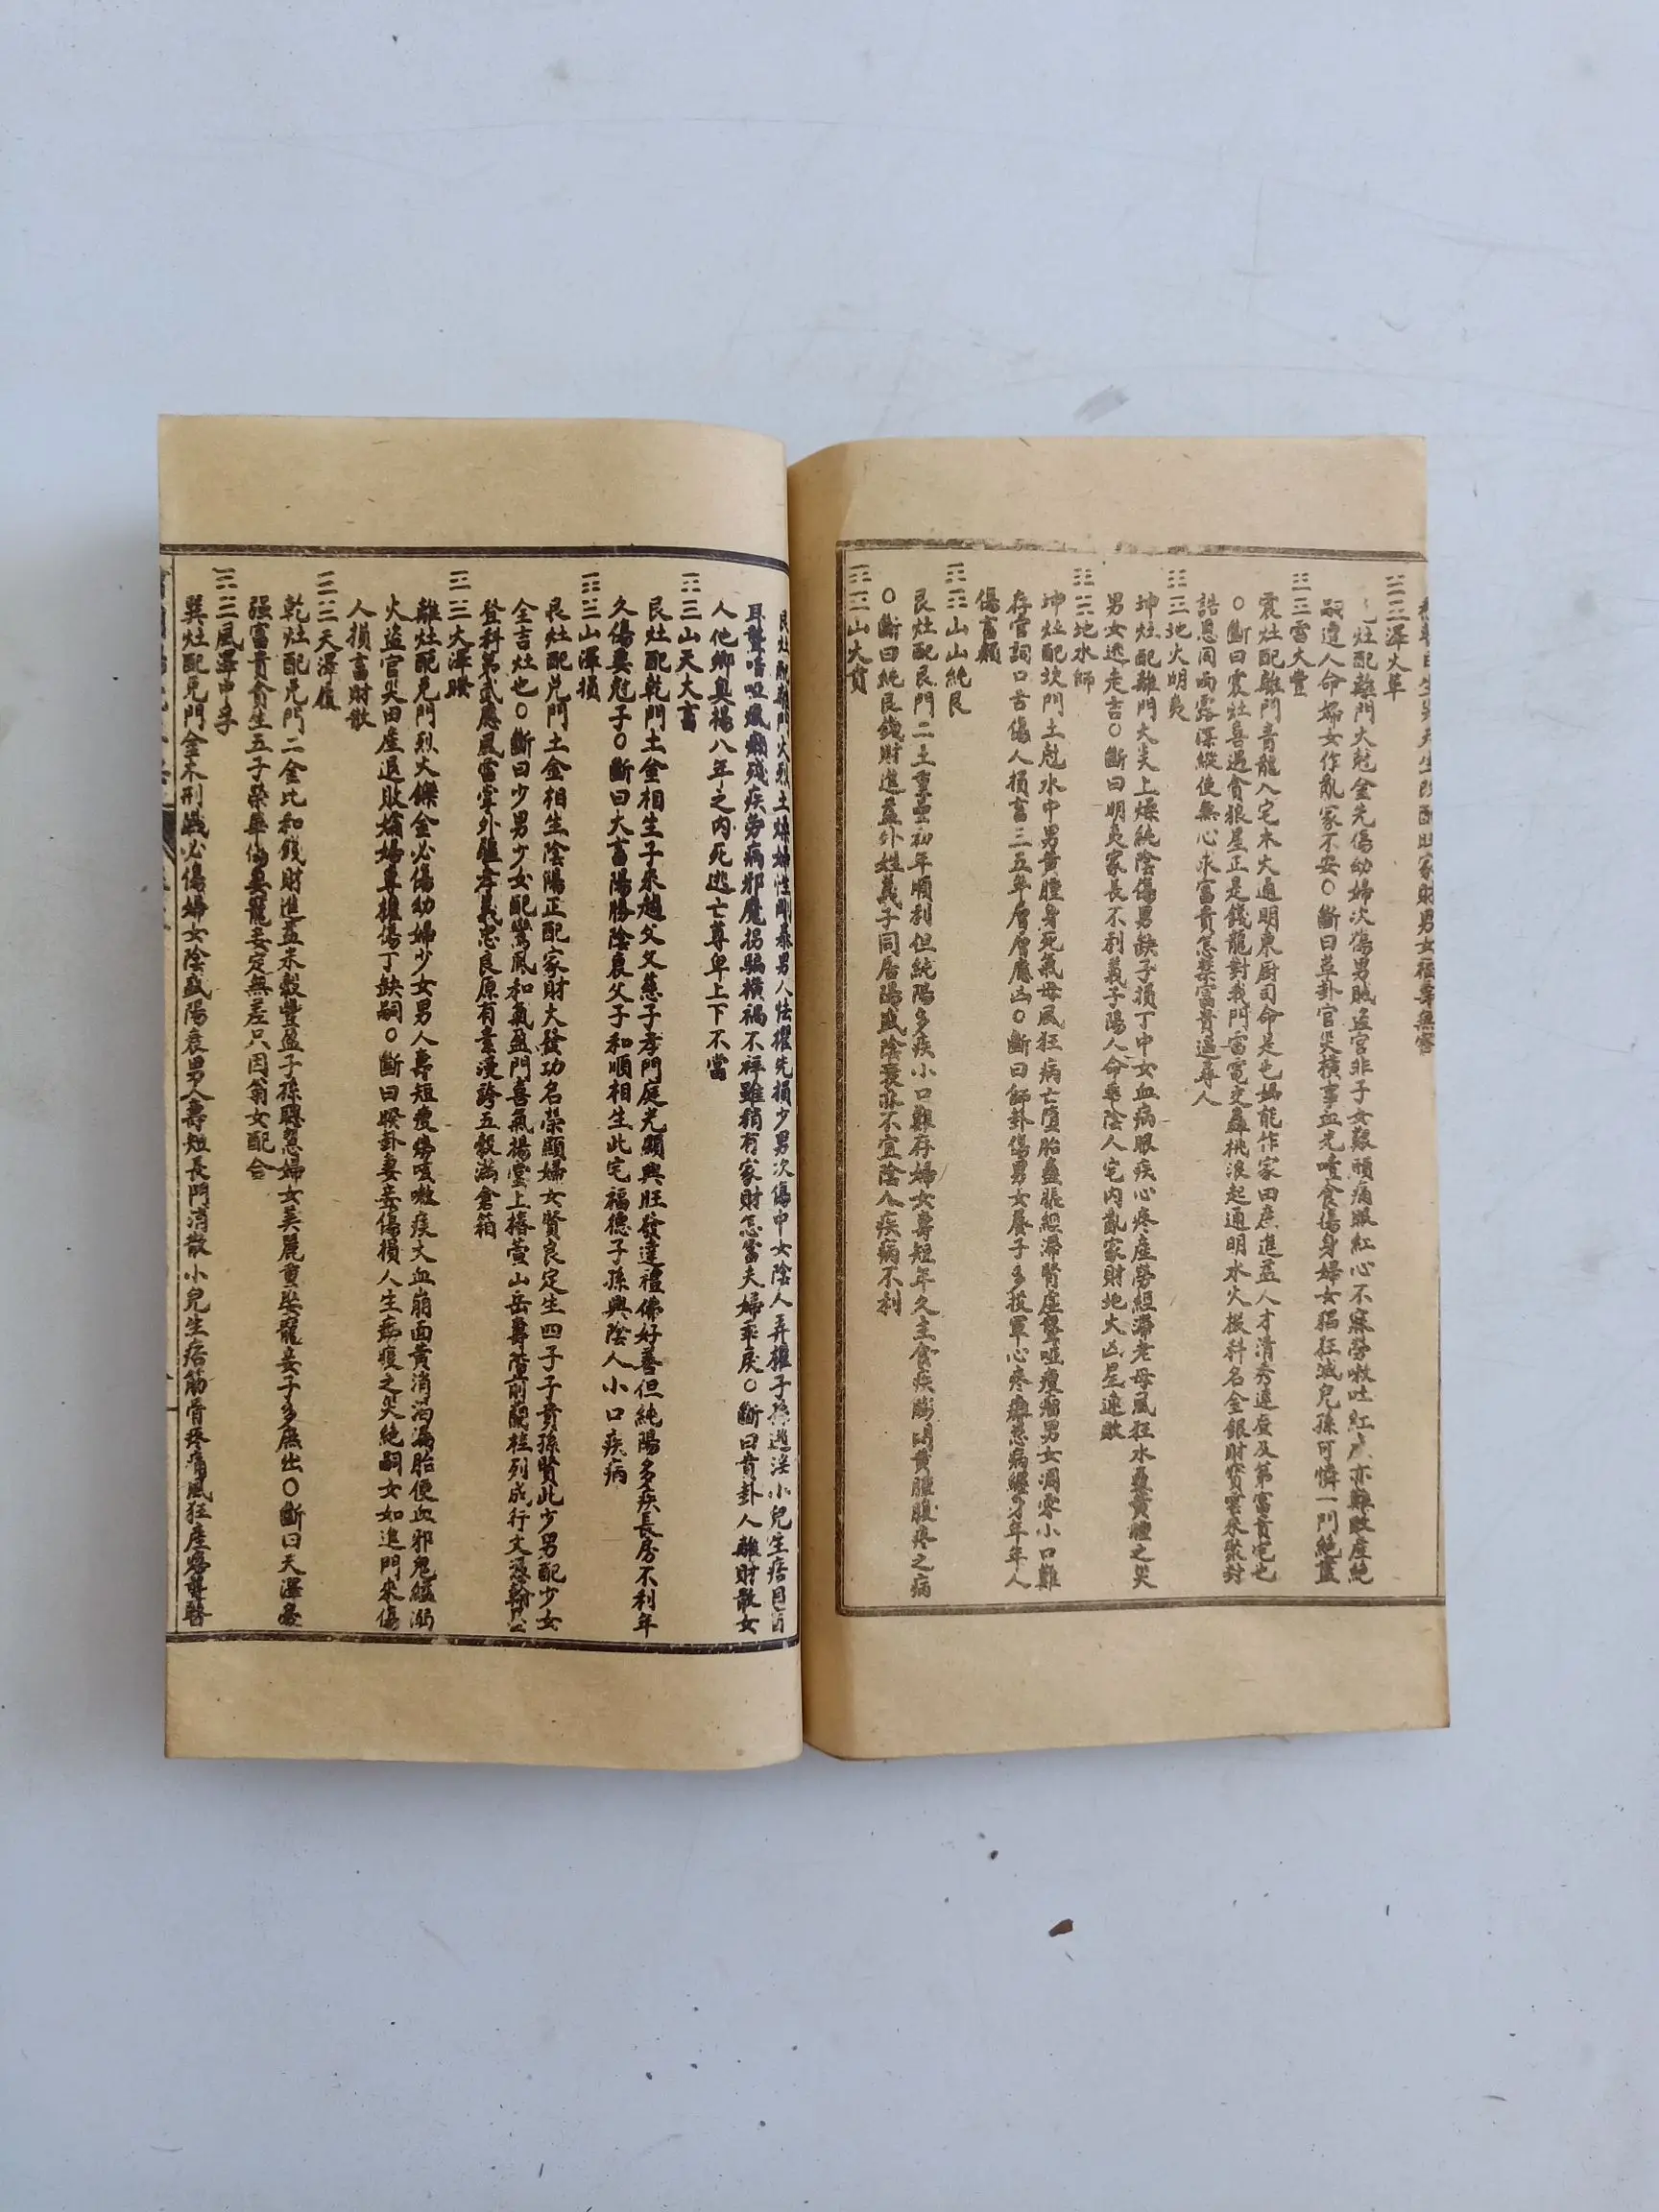 澤火革
灶配離門火尅金先傷幼婦次傷男賊盜官非子女艱頭痛眼紅心不寐勞嗽吐紅
嗣遭人命婦女作亂家不安○斷曰革卦官災橫事血光噎食傷身婦女猖狂滅兒孫可憐一門絶盡
雷火豐
震灶配離門青龍入宅木火通明東厨司命是也媽能作家田庶進益人才清秀連登及第富貴宅也
○斷曰震灶喜遇貪狼星正是錢龍對我門雷電交轟桃浪起通明水火掇科名金銀財寶雲來聚封
誥恩同雨露深縱使無心求富貴怎禁富貴逼尋人
地火明夷
坤灶配離門火炎上燥純陰傷男缺子損丁中女血病眼疾心疼産勞經滯老母風狂水蠱黄腫之災
男女逃走吉○斷曰明夷家長不利義子陽人命乖陰人宅内亂家財地火凶星速敗
地水師
坤灶配坎門土尅水中男黄腫身死氣母風狂病亡墮胎蠱脹經滯腎虚聾啞癭瘤男女凋零小口難
存官詞口舌傷人損畜三五年層層應凶○斷曰師卦傷男女養子多投軍心疼蠱病年年人
傷畜頻
山山純艮
艮灶配艮門二土重疊初年順利但純陽多疾小口難存婦女壽短年久主食疾膨悶黄腫腹疼之病
○斷曰純艮錢財進益外姓義子同居陽盛陰衰亦不宜陰人疾病不利
山火賁
艮灶配離門火烈土燥婦性剛暴男人怯懼先損少男次傷中女陰人弄權子孫邀淫小兒生痞目盲
耳聾喑啞瘋癱殘疾勞病邪魔拐騙横禍不祥雖稍有家財怎當夫婦乖戾○斷曰賁卦人離財散女
人他鄉奥禍八年之内死逃亡尊卑上下不當
山天大畜
艮灶配乾門土金相生子來趨父父慈子孝門庭光顯興旺發達禮佛好善但純陽多疾長房不利年
久傷妻尅子○斷曰大畜陽勝陰衰父子和順相生此宅福德子孫興陰人小口疾病
山澤損
艮灶配兑門土金相生陰陽正配家財大發功名榮顯婦女賢良定生四子子貴孫賢此少男配少女
全吉灶也○斷曰少男少女配鸞風和氣盈門喜氣揚堂上椿萱山岳壽階前蘭桂列成行文憑翰墨
登科第武應風雷掌外疆孝義忠良原有素漫誇五穀滿倉箱
火澤睽
離灶配兑門烈火鑠金必傷幼婦少女男人壽短痰癆咳嗽疾火血崩面黄消渴漏胎便血邪鬼縊溺
火盗官災田産退敗孀婦專權傷丁缺嗣○斷曰睽卦妻妾傷損人生瘟疫之災絶嗣女如進門來傷
人損畜財散
天澤履
乾灶配兑門二金比和錢財進益米穀豐盈子孫聰慧婦女美麗重娶寵妾子多庶出○斷曰天澤臺
强富貴貪生五子榮華傷妻寵妾定無差只因翁女配合
風澤中孚
巽灶配兑門金木刑戰必傷婦女陰盛陽衰男人壽短長門消散小兒生痞筋骨疼痛風狂産癆聾瞽